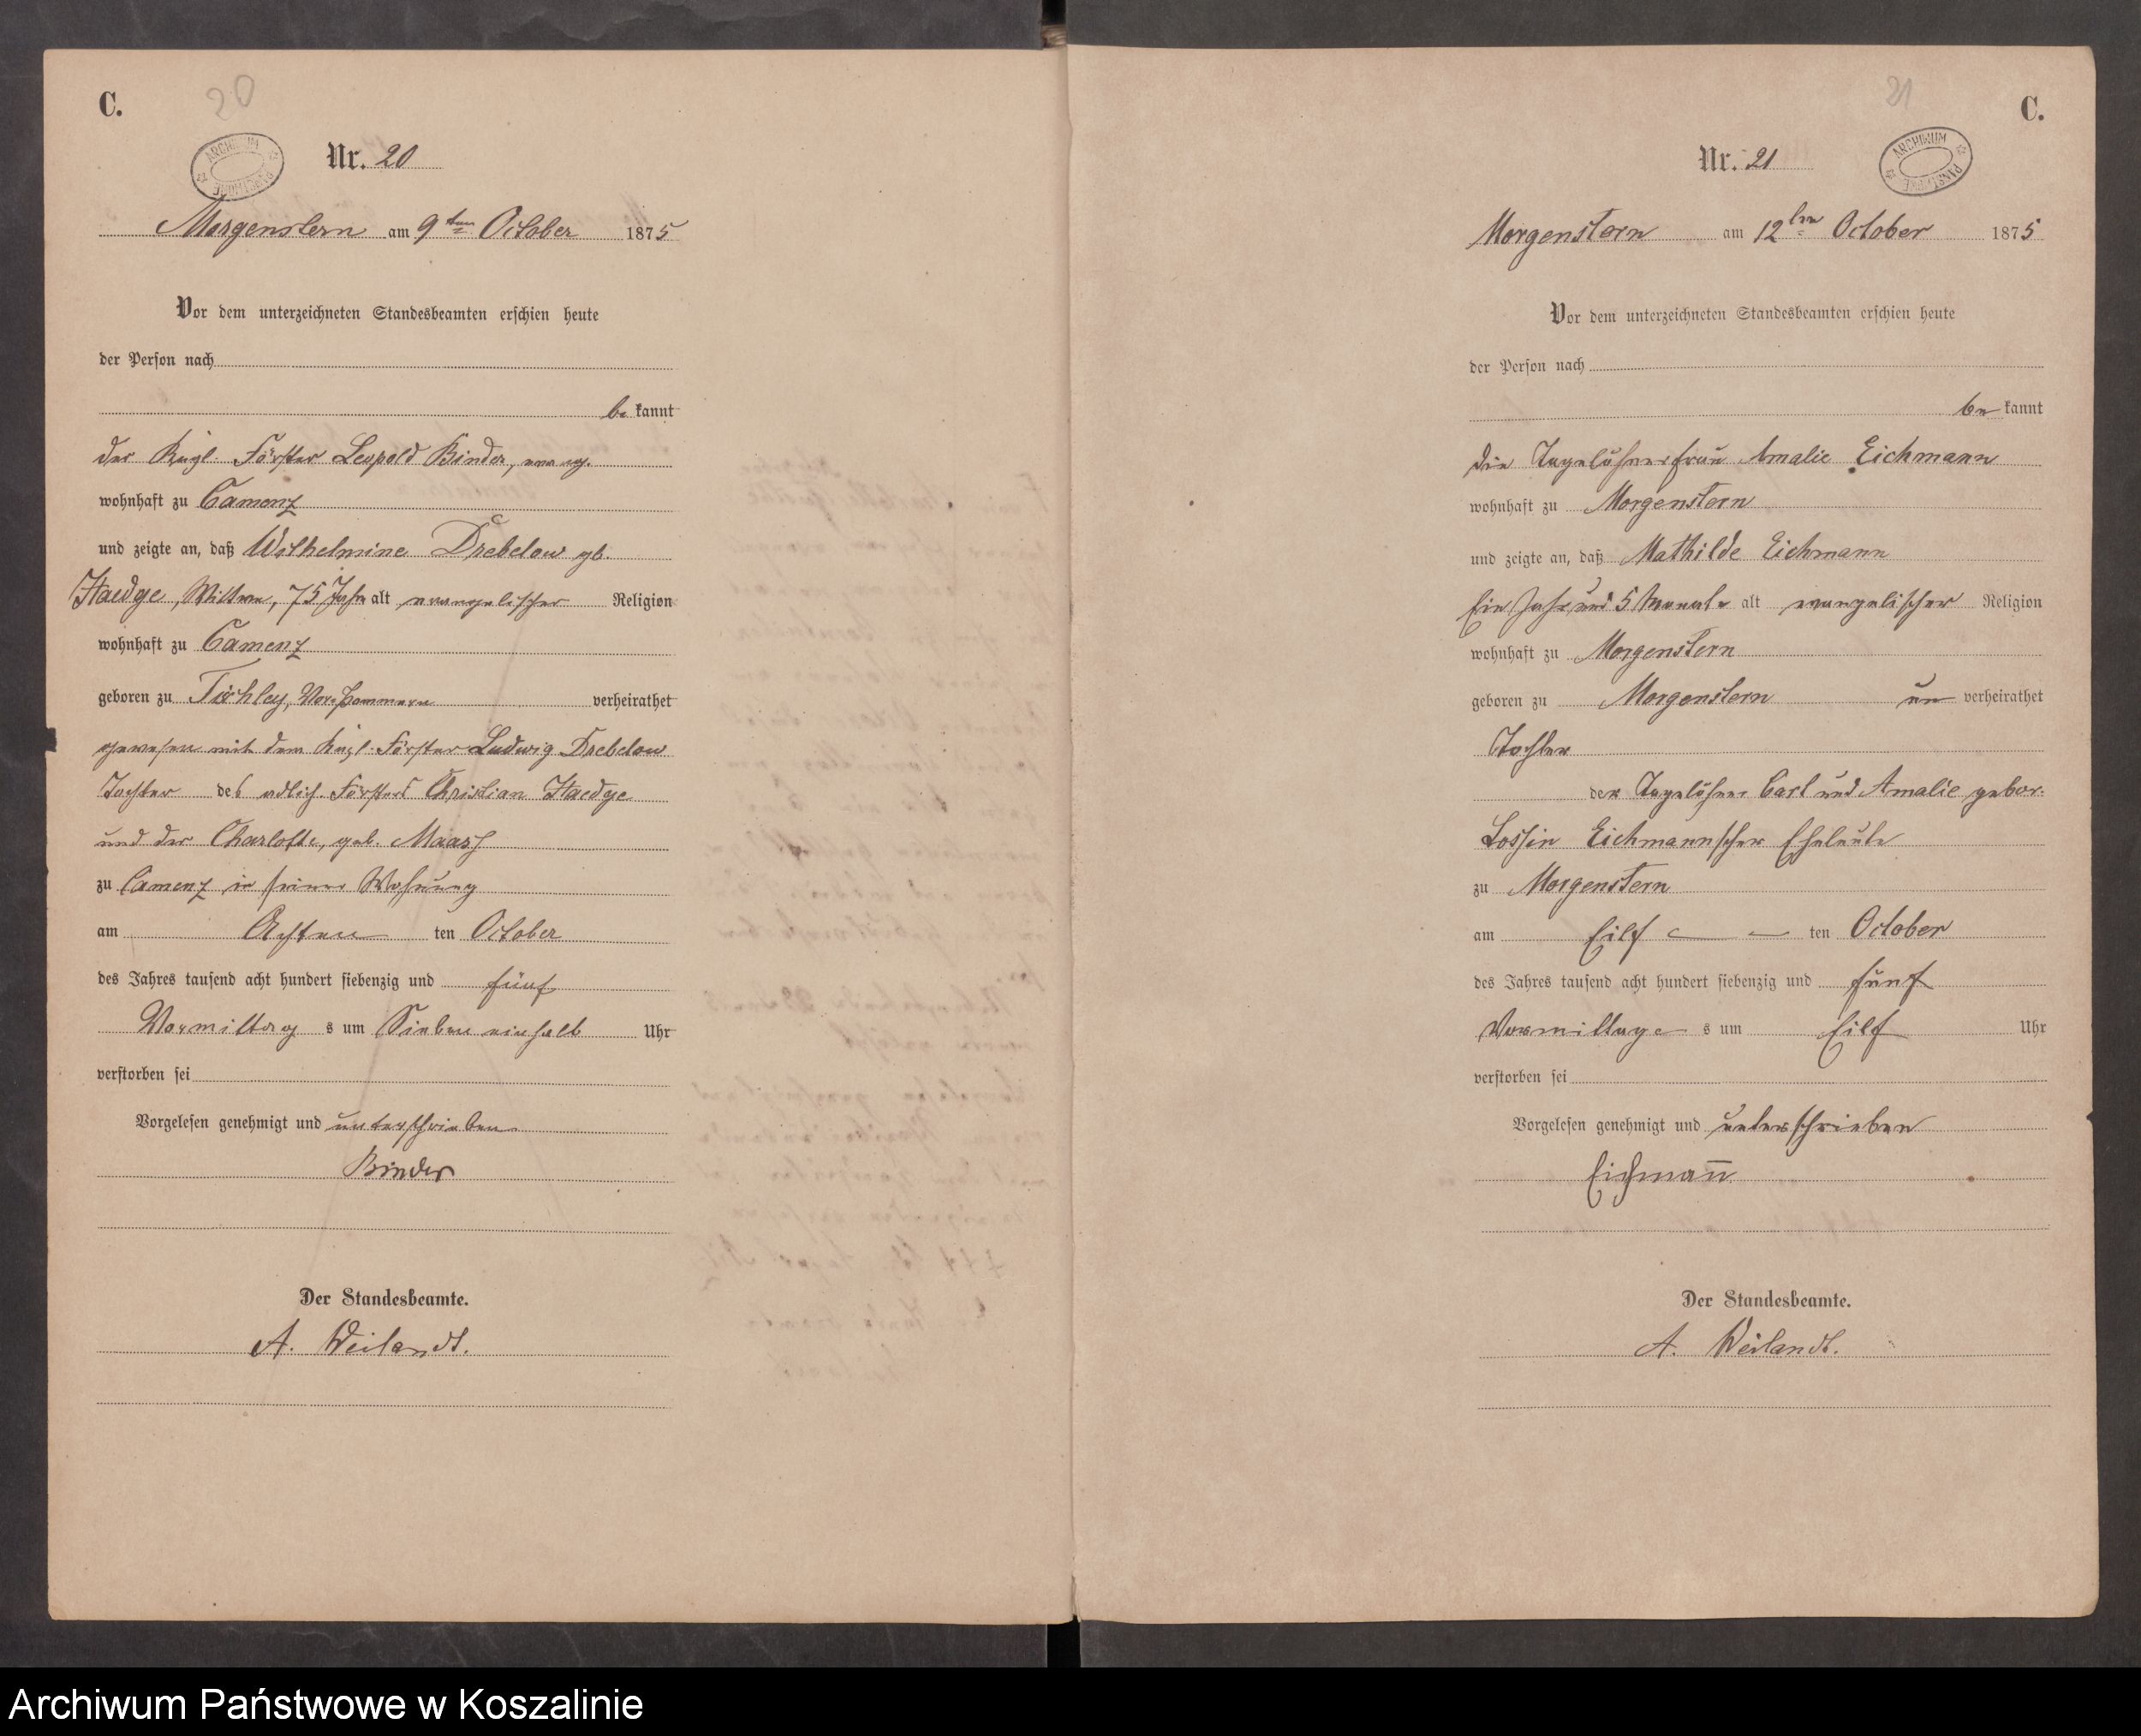 C.
20
Nr. 20
ARCHIWUM PAŃSTWOWE
Morgenstern am 9ten October 1875
Vor dem unterzeichneten Standesbeamten erschien heute
der Person nach
be kannt
der Kngl. Förster Leopold Binder, evang.
wohnhaft zu Camenz
und zeigte an, daß Wilhelmine Drebelow gb.
Haedge, Wittwe, 75 Jahr alt evangelischer Religion
wohnhaft zu Camenz
geboren zu Vorpommern verheirathet
gewesen mit dem Kngl. Förster Ludwig Drebelow
Tochter des adlich. Försters Christian Haedge
und der Charlotte, geb. Maass
zu Camenz in seiner Wohnung
am Achten ten October
des Jahres tausend acht hundert siebenzig und fünf
Vormittag s um Sieben einhalb Uhr
verstorben sei
Vorgelesen genehmigt und unterschrieben
Binder
Der Standesbeamte.
A. Weilandt.
21
C.
Nr. 21
ARCHIWUM PAŃSTWOWE
Morgenstern am 12ten October 1875
Vor dem unterzeichneten Standesbeamten erschien heute
der Person nach
be kannt
die Tagelöhnerfrau Amalie Eichmann
wohnhaft zu Morgenstern
und zeigte an, daß Mathilde Eichmann
Ein Jahr und 5 Monate alt evangelischer Religion
wohnhaft zu Morgenstern
geboren zu Morgenstern un verheirathet
Tochter
der Tagelöhner Carl und Amalie gebor.
Lossin Eichmannscher Eheleute
zu Morgenstern
am Eilf ten October
des Jahres tausend acht hundert siebenzig und fünf
Vormittage s um Eilf Uhr
verstorben sei
Vorgelesen genehmigt und unterschrieben
Eichmann
Der Standesbeamte.
A. Weilandt.
Archiwum Państwowe w Koszalinie